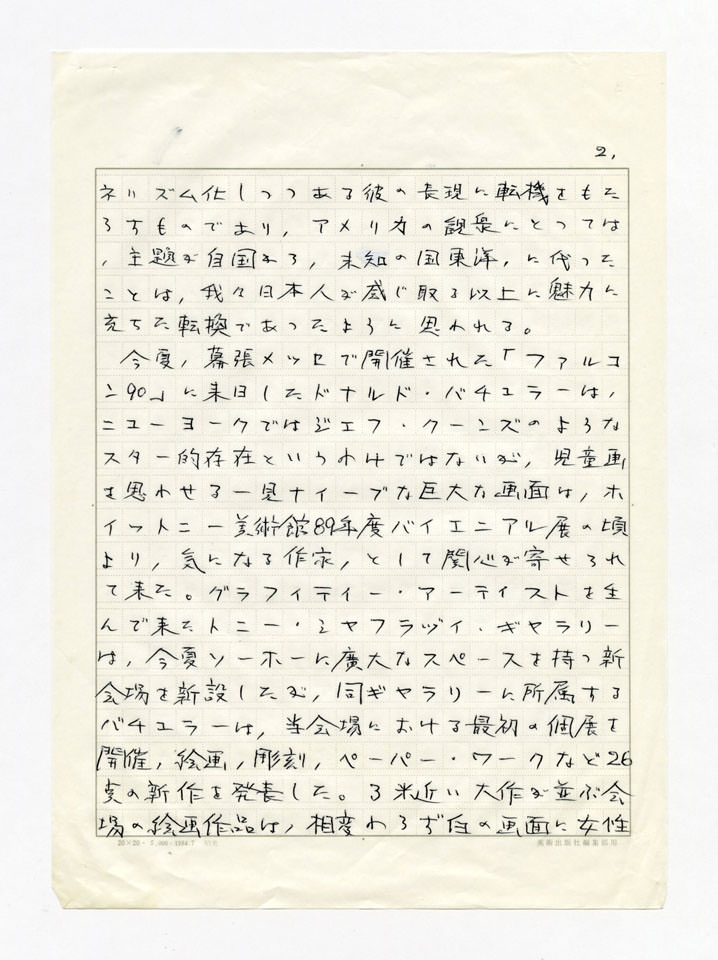 2,
ネリズム化しつつある彼の表現に転機をもた
らすものであり，アメリカの観衆にとっては
，主題が自国から，未知の国東洋，に代った
ことは，我々日本人が感じ取る以上に魅力に
充ちた転換であったように思われる。
今夏，幕張メッセで開催された「ファルコ
ン90」に来日したドナルド・バチェラーは，
ニューヨークではジェフ・クーンズのような
スター的存在というわけではないが，児童画
を思わせる一見ナイーブな巨大な画面は，ホ
イットニー美術館89年度バイエニアル展の頃
より，気になる作家，として関心が寄せられ
て来た。グラフィティー・アーティストを生
んで来たトニー・シャフラヅィ・ギャラリー
は，今夏ソーホーに廣大なスペースを持つ新
会場を新設したが，同ギャラリーに所属する
バチェラーは，当会場における最初の個展を
開催，絵画，彫刻，ペーパー・ワークなど26
点の新作を発表した。3米近い大作が並ぶ会
場の絵画作品は，相変わらず白の画面に女性
20×20・5,000・1984.7
美術出版社編集部用